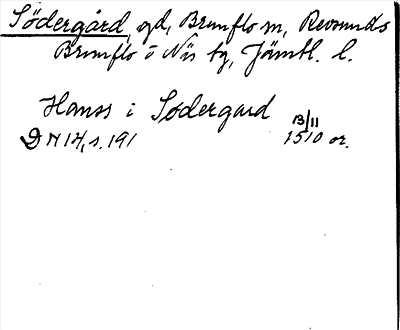 Södergård, gd, Brunflo sn, Revsunds
Brunflo o Näs tg, Jämtl. l.
Hanss i Sødergard 13/11
DN 14, s. 191 1510 or.